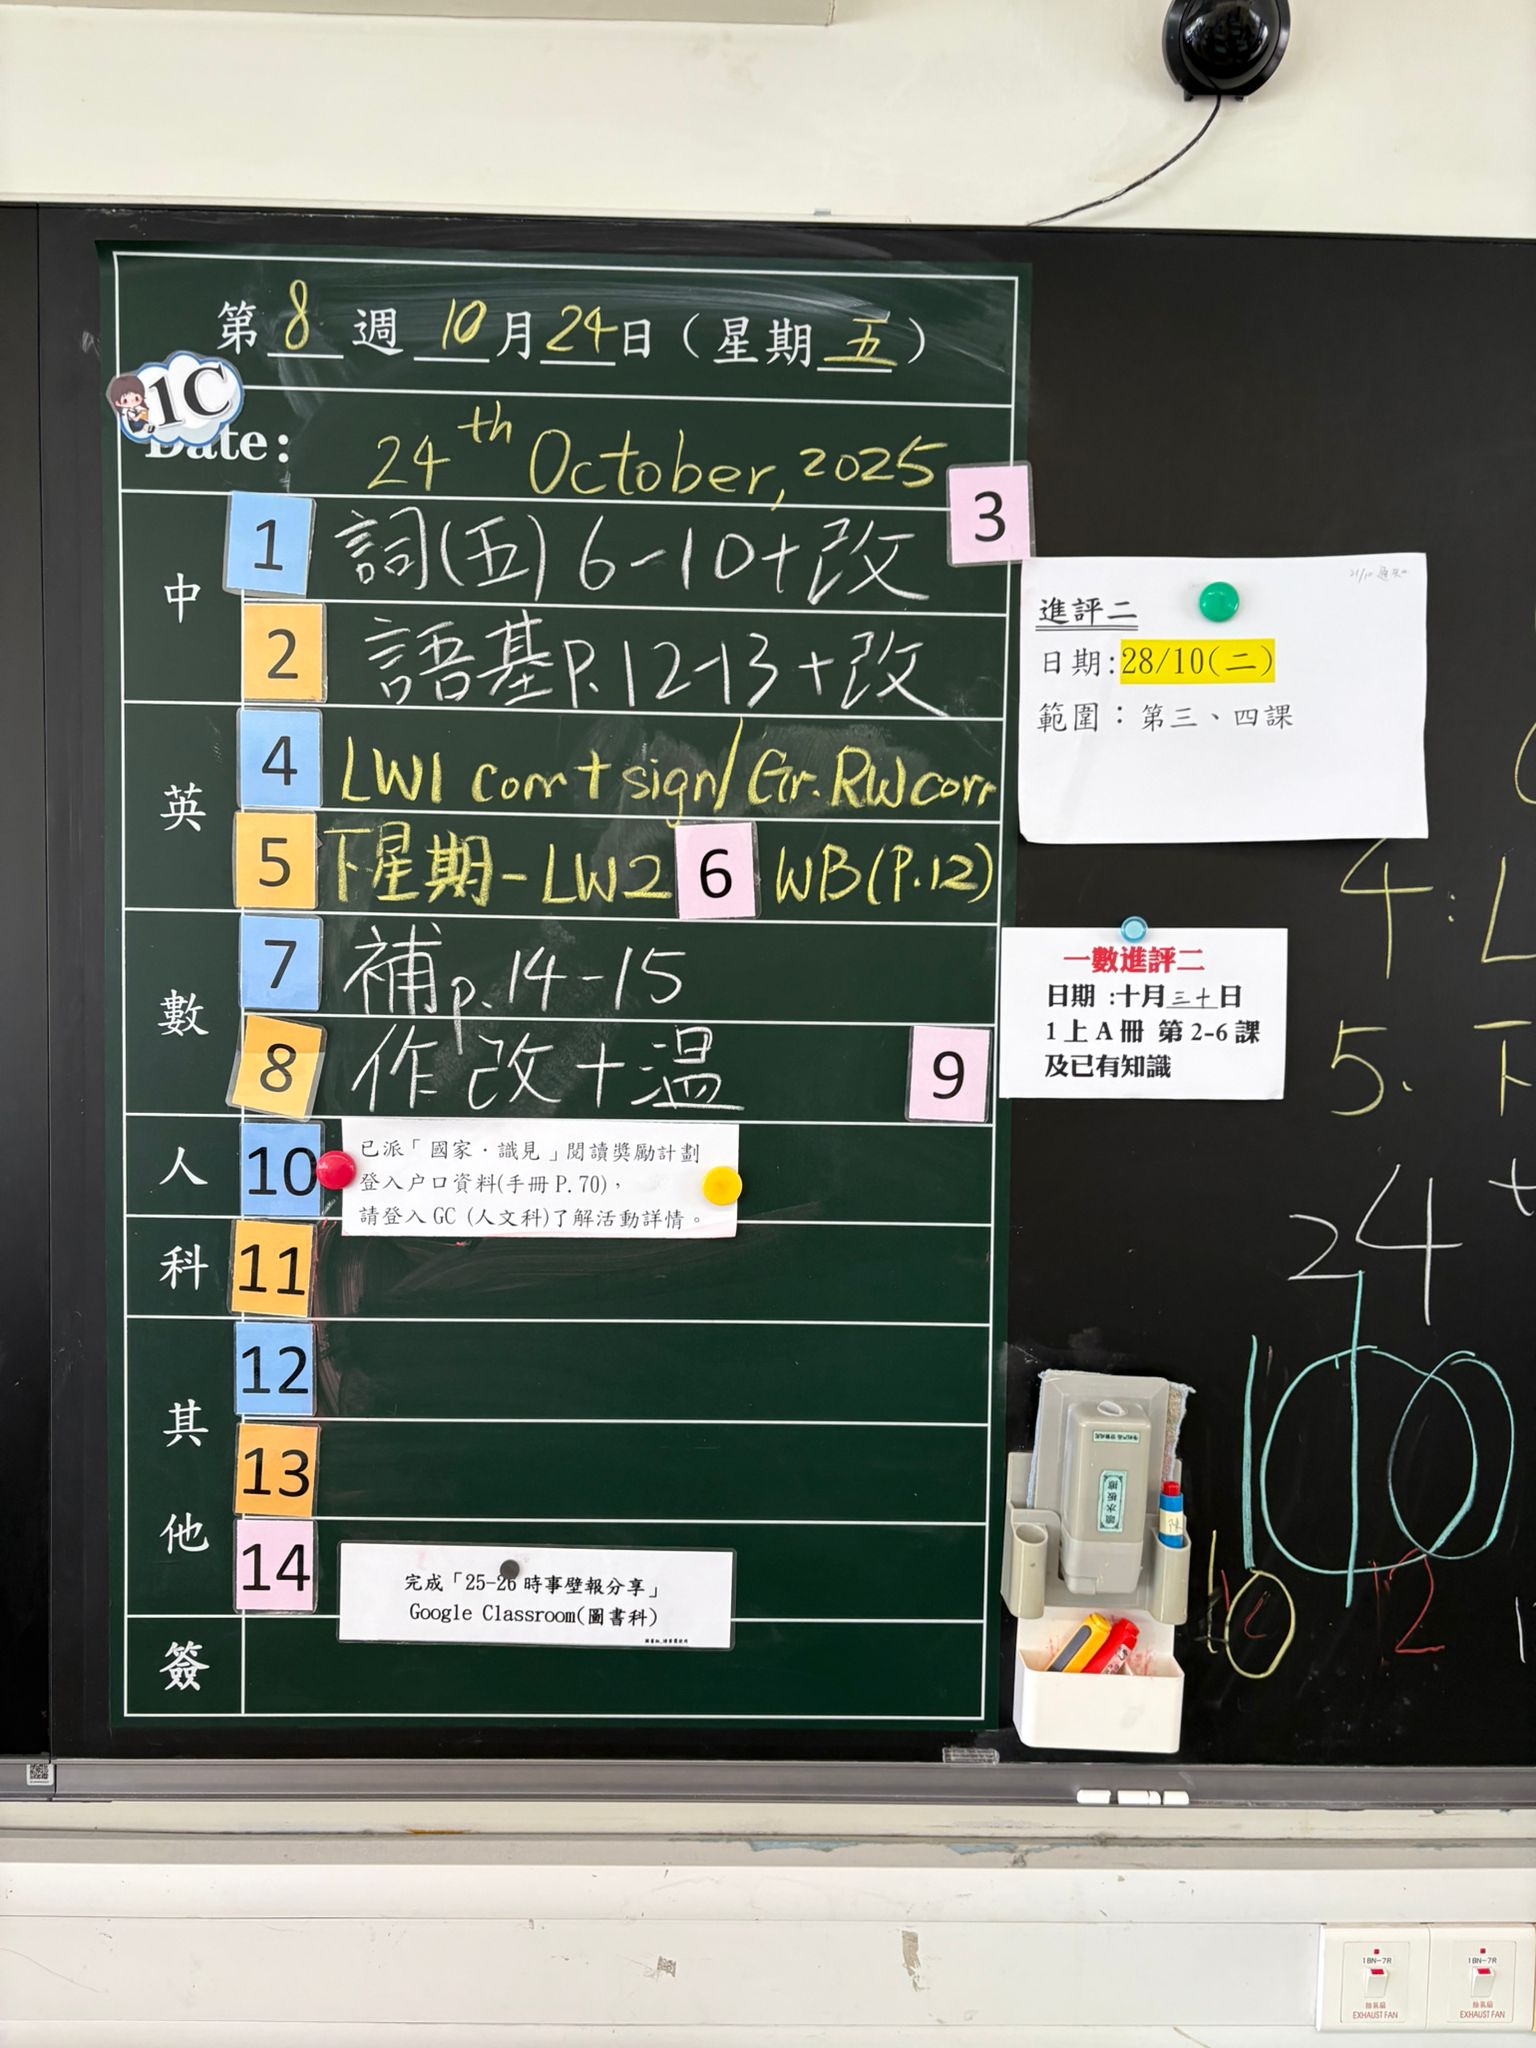 第 8 週 10 月 24 日（星期 五）
1C
Date: 24th October, 2025
中
1 詞(五) 6-10+改
3
2 語基P.12-13+改
英
4 LW1 corr+sign/Gr.RWcorr
5 下星期-LW2 6 WB(P.12)
數
7 補p.14-15
8 作改+溫
9
人
10 已派「國家．識見」閱讀獎勵計劃
登入户口資料(手冊 P.70)，
請登入 GC (人文科)了解活動詳情。
科
11
其他
12
13
14 完成「25-26 時事壁報分享」
Google Classroom(圖書科)
簽
進評二
日期:28/10(二)
範圍：第三、四課
一數進評二
日期 :十月三十日
1 上 A 冊 第 2-6 課
及已有知識
4:L
5.下
24
100
12
噴水板擦
1BN-7R
除氣扇
EXHAUST FAN
1BN-7R
除氣扇
EXHAUST FAN